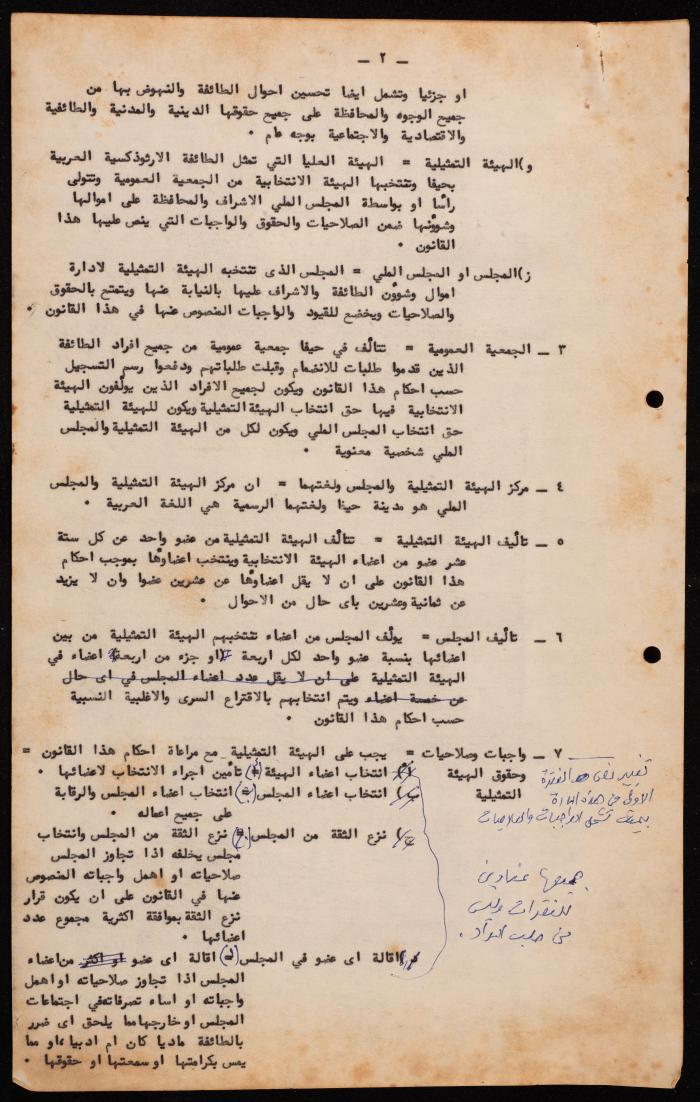 — ٢ —
او جزئيا وتشمل ايضا تحسين احوال الطائفة والنهوض بها من
جميع الوجوه والمحافظة على جميع حقوقها الدينية والمدنية والطائفية
والاقتصادية والاجتماعية بوجه عام .
و)الهيئة التمثيلية = الهيئة العليا التي تمثل الطائفة الارثوذكسية العربية
بحيفا وتنتخبها الهيئة الانتخابية من الجمعية العمومية وتتولى
رأسا او بواسطة المجلس الملي الاشراف والمحافظة على اموالها
وشوؤنها ضمن الصلاحيات والحقوق والواجبات التي ينص عليها هذا
القانون .
ز)المجلس او المجلس الملي = المجلس الذى تنتخبه الهيئة التمثيلية لادارة
اموال وشوؤن الطائفة والاشراف عليها بالنيابة عنها ويتمتع بالحقوق
والصلاحيات ويخضع للقيود والواجبات المنصوص عنها في هذا القانون .
٣ — الجمعية العمومية = تتألف في حيفا جمعية عمومية من جميع افراد الطائفة
الذين قدموا طلبات للانضمام وقبلت طلباتهم ودفعوا رسم التسجيل
حسب احكام هذا القانون ويكون لجميع الافراد الذين يولفون الهيئة
الانتخابية فيها حق انتخاب الهيئة التمثيلية ويكون للهيئة التمثيلية
حق انتخاب المجلس الملي ويكون لكل من الهيئة التمثيلية والمجلس
الملي شخصية معنوية .
٤ — مركز الهيئة التمثيلية والمجلس ولغتهما = ان مركز الهيئة التمثيلية والمجلس
الملي هو مدينة حيفا ولغتهما الرسمية هي اللغة العربية .
٥ — تأليف الهيئة التمثيلية = تتألف الهيئة التمثيلية من عضو واحد عن كل ستة
عشر عضو من اعضاء الهيئة الانتخابية وينتخب اعضاوها بموجب احكام
هذا القانون على ان لا يقل اعضاوها عن عشرين عضوا وان لا يزيد
عن ثمانية وعشرين باى حال من الاحوال .
٦ — تأليف المجلس = يولف المجلس من اعضاء تنتخبهم الهيئة التمثيلية من بين
اعضائها بنسبة عضو واحد لكل اربعة او جزء من اربعة اعضاء في
الهيئة التمثيلية على ان لا يقل عدد اعضاء المجلس في اى حال
عن خمسة اعضاء ويتم انتخابهم بالاقتراع السرى والاغلبية النسبية
حسب احكام هذا القانون .
٧ — واجبات وصلاحيات = يجب على الهيئة التمثيلية مع مراعاة احكام هذا القانون =
وحقوق الهيئة أ) انتخاب اعضاء الهيئة (أ) تأمين اجراء الانتخاب لاعضائها .
التمثيلية ب) انتخاب اعضاء المجلس (ب) انتخاب اعضاء المجلس والرقابة
على جميع اعماله .
ج) نزع الثقة من المجلس (ج) نزع الثقة من المجلس وانتخاب
مجلس يخلفه اذا تجاوز المجلس
صلاحياته او اهمل واجباته المنصوص
عنها في القانون على ان يكون قرار
نزع الثقة بموافقة اكثرية مجموع عدد
اعضائها .
د) اقالة اى عضو في المجلس (د) اقالة اى عضو او اكثر من اعضاء
المجلس اذا تجاوز صلاحياته او اهمل
واجباته او اساء تصرفاته في اجتماعات
المجلس او خارجها مما يلحق اى ضرر
بالطائفة ماديا كان ام ادبياءاو مما
يمس بكرامتها او سمعتها او حقوقها .
تغيير نص هذه الفقرة
الاولى من هذه المادة
بحيث تشمل الواجبات والصلاحيات
جميعها عناوين
للفقرات وليس
من صلب المواد .